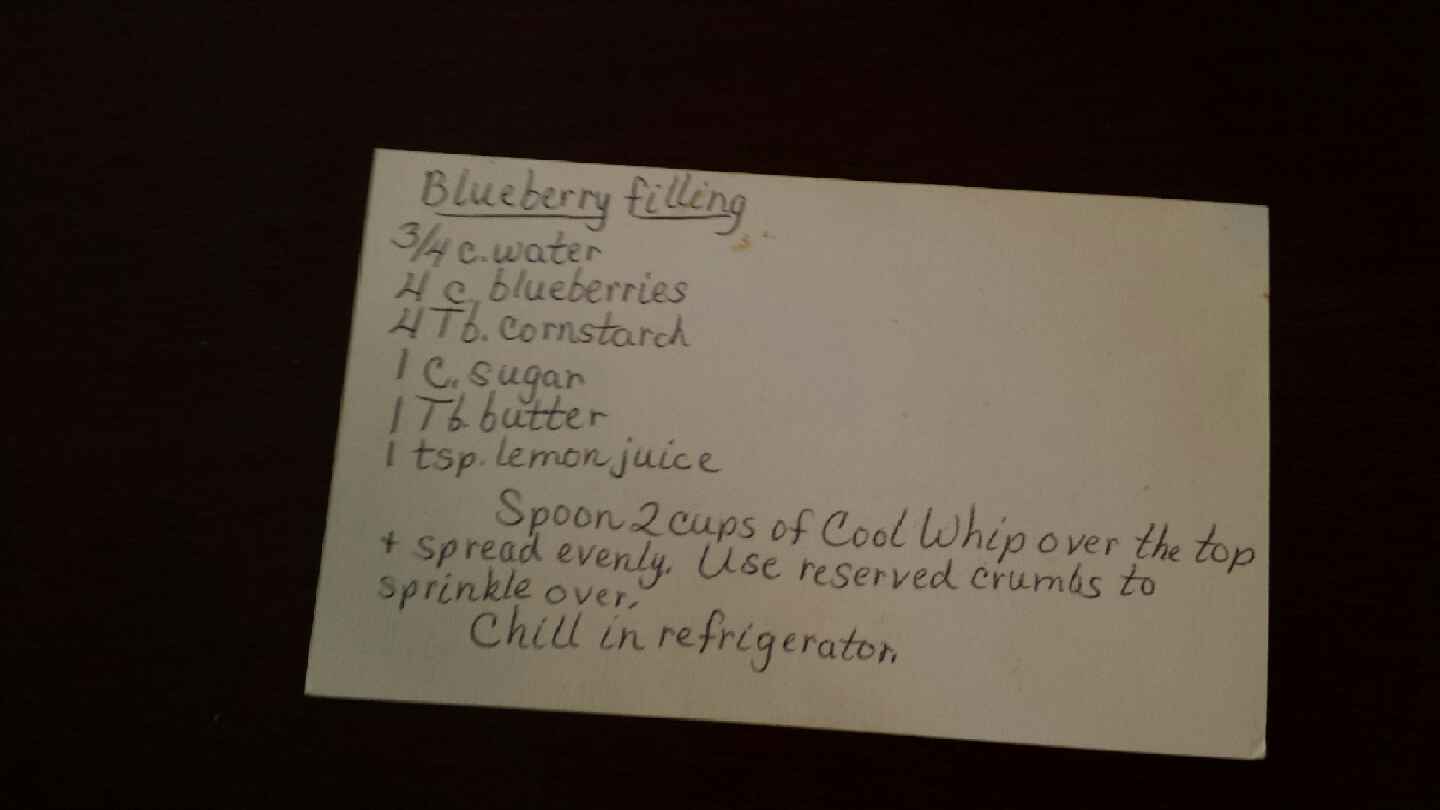 Blueberry filling
3/4 c. water
4 c. blueberries
4 Tb. cornstarch
1 C. sugar
1 Tb. butter
1 tsp. lemon juice
Spoon 2 cups of Cool Whip over the top
+ spread evenly. Use reserved crumbs to
sprinkle over.
Chill in refrigerator.